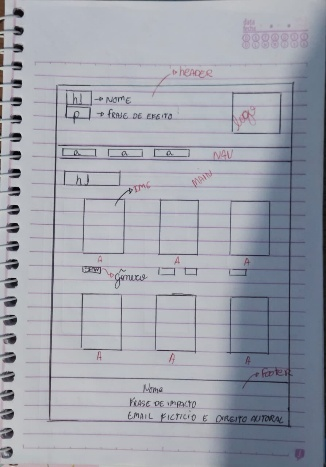 HEADER
h1 → NOME
P → FRASE DE EFEITO
logo
a a a NAV
h1 MAIN
IMG
A A A
gênero
A A A
FOOTER
Nome
FRASE DE IMPACTO
EMAIL FICTICIO E DIREITO AUTORAL